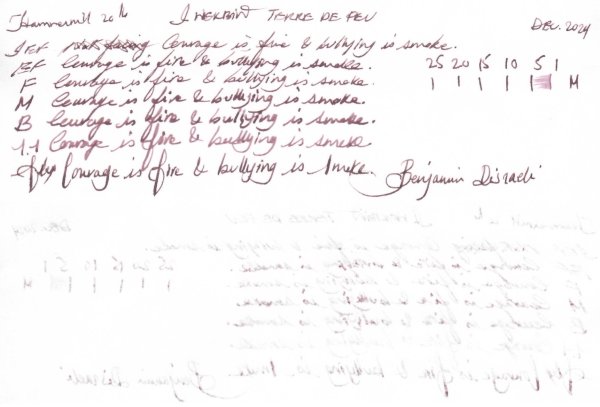 Hammermill 20 lb J HERBIN TERRE DE FEU DEC. 2024
Courage is fire & bullying is smoke.
EF Courage is fire & bullying is smoke. 25 20 15 10 5 1
F Courage is fire & bullying is smoke. M
M Courage is fire & bullying is smoke.
B Courage is fire & bullying is smoke.
1.1 Courage is fire & bullying is smoke
flex Courage is fire & bullying is smoke. Benjamin Disraeli